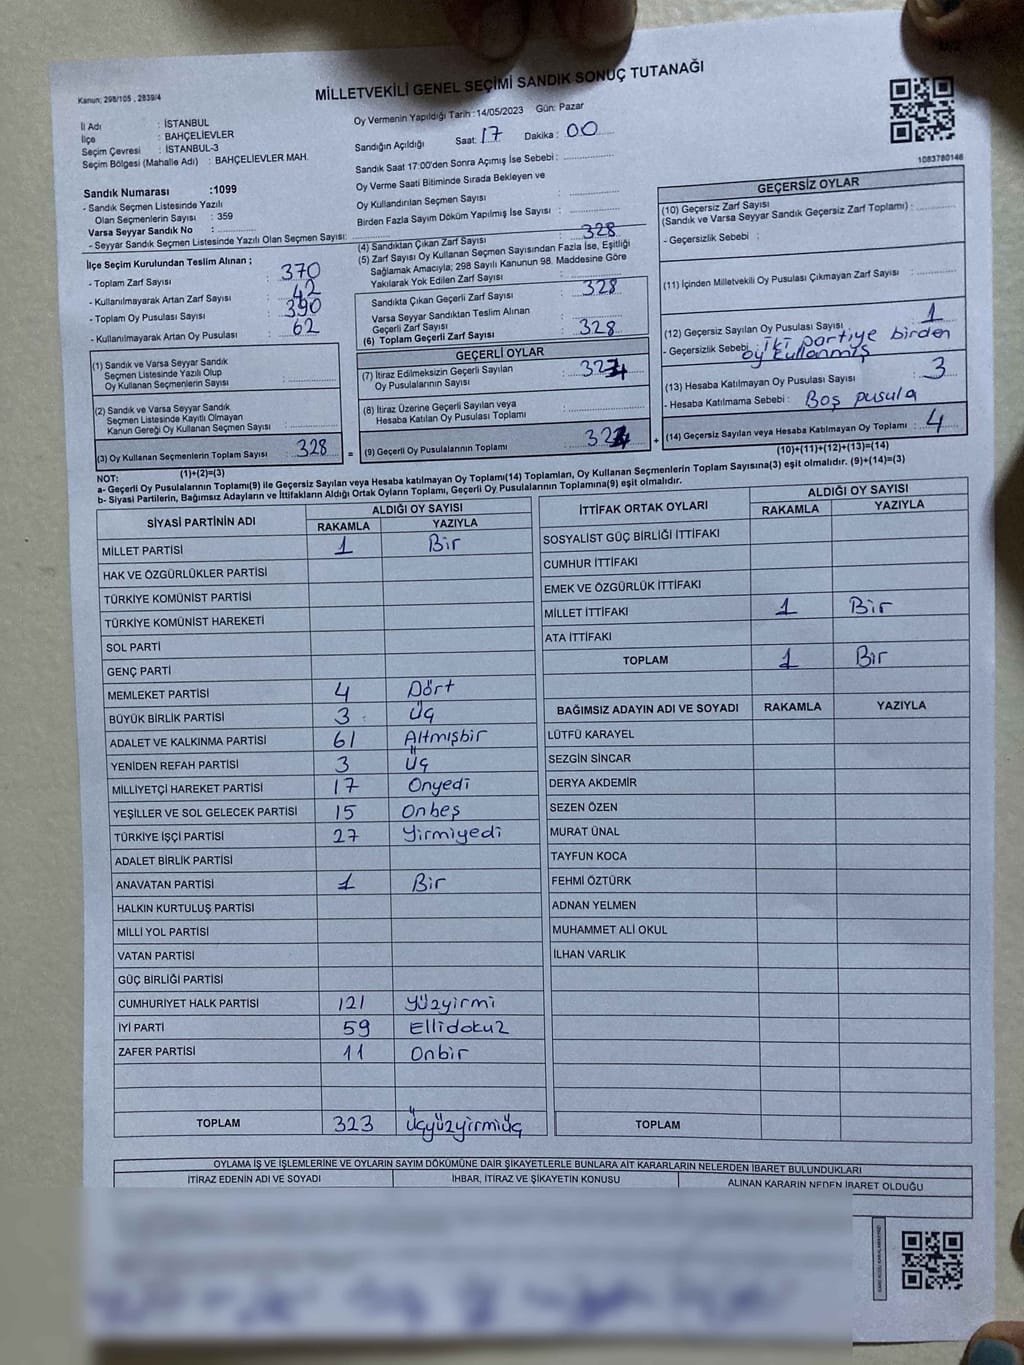 Kanun; 298/105 , 2839/4
MİLLETVEKİLİ GENEL SEÇİMİ SANDIK SONUÇ TUTANAĞI
İl Adı : İSTANBUL
İlçe : BAHÇELİEVLER
Seçim Çevresi : İSTANBUL-3
Seçim Bölgesi (Mahalle Adı) : BAHÇELİEVLER MAH.
Oy Vermenin Yapıldığı Tarih :14/05/2023 Gün: Pazar
Sandığın Açıldığı Saat: 17 Dakika : 00
Sandık Saat 17:00'den Sonra Açımış İse Sebebi :
Oy Verme Saati Bitiminde Sırada Bekleyen ve
Oy Kullandırılan Seçmen Sayısı :
Birden Fazla Sayım Döküm Yapılmış İse Sayısı :
1083780146
Sandık Numarası :1099
- Sandık Seçmen Listesinde Yazılı
Olan Seçmenlerin Sayısı : 359
Varsa Seyyar Sandık No :
- Seyyar Sandık Seçmen Listesinde Yazılı Olan Seçmen Sayısı:
İlçe Seçim Kurulundan Teslim Alınan ;
- Toplam Zarf Sayısı : 370
- Kullanılmayarak Artan Zarf Sayısı : 42
- Toplam Oy Pusulası Sayısı : 390
- Kullanılmayarak Artan Oy Pusulası : 62
(1) Sandık ve Varsa Seyyar Sandık
Seçmen Listesinde Yazılı Olup
Oy Kullanan Seçmenlerin Sayısı :
(2) Sandık ve Varsa Seyyar Sandık
Seçmen Listesinde Kayıtlı Olmayan
Kanun Gereği Oy Kullanan Seçmen Sayısı :
(3) Oy Kullanan Seçmenlerin Toplam Sayısı : 328
(1)+(2)=(3)
(4) Sandıktan Çıkan Zarf Sayısı : 328
(5) Zarf Sayısı Oy Kullanan Seçmen Sayısından Fazla İse, Eşitliği
Sağlamak Amacıyla; 298 Sayılı Kanunun 98. Maddesine Göre
Yakılarak Yok Edilen Zarf Sayısı :
Sandıkta Çıkan Geçerli Zarf Sayısı : 328
Varsa Seyyar Sandıktan Teslim Alınan
Geçerli Zarf Sayısı :
(6) Toplam Geçerli Zarf Sayısı : 328
GEÇERLİ OYLAR
(7) İtiraz Edilmeksizin Geçerli Sayılan
Oy Pusulalarının Sayısı : 324
(8) İtiraz Üzerine Geçerli Sayılan veya
Hesaba Katılan Oy Pusulası Toplamı :
= (9) Geçerli Oy Pusulalarının Toplamı : 324 +
GEÇERSİZ OYLAR
(10) Geçersiz Zarf Sayısı
(Sandık ve Varsa Seyyar Sandık Geçersiz Zarf Toplamı) :
- Geçersizlik Sebebi :
(11) İçinden Milletvekili Oy Pusulası Çıkmayan Zarf Sayısı :
(12) Geçersiz Sayılan Oy Pusulası Sayısı : 1
- Geçersizlik Sebebi : İki partiye birden
oy kullanmış
(13) Hesaba Katılmayan Oy Pusulası Sayısı : 3
- Hesaba Katılmama Sebebi : Boş pusula
(14) Geçersiz Sayılan veya Hesaba Katılmayan Oy Toplamı : 4
(10)+(11)+(12)+(13)=(14)
NOT:
a- Geçerli Oy Pusulalarının Toplamı(9) ile Geçersiz Sayılan veya Hesaba katılmayan Oy Toplamı(14) Toplamları, Oy Kullanan Seçmenlerin Toplam Sayısına(3) eşit olmalıdır. (9)+(14)=(3)
b- Siyasi Partilerin, Bağımsız Adayların ve İttifakların Aldığı Ortak Oyların Toplamı, Geçerli Oy Pusulalarının Toplamına(9) eşit olmalıdır.
SİYASİ PARTİNİN ADI ALDIĞI OY SAYISI
RAKAMLA YAZIYLA
MİLLET PARTİSİ 1 Bir
HAK VE ÖZGÜRLÜKLER PARTİSİ
TÜRKİYE KOMÜNİST PARTİSİ
TÜRKİYE KOMÜNİST HAREKETİ
SOL PARTİ
GENÇ PARTİ
MEMLEKET PARTİSİ 4 Dört
BÜYÜK BİRLİK PARTİSİ 3 Üç
ADALET VE KALKINMA PARTİSİ 61 Altmışbir
YENİDEN REFAH PARTİSİ 3 Üç
MİLLİYETÇİ HAREKET PARTİSİ 17 Onyedi
YEŞİLLER VE SOL GELECEK PARTİSİ 15 Onbeş
TÜRKİYE İŞÇİ PARTİSİ 27 Yirmiyedi
ADALET BİRLİK PARTİSİ
ANAVATAN PARTİSİ 1 Bir
HALKIN KURTULUŞ PARTİSİ
MİLLİ YOL PARTİSİ
VATAN PARTİSİ
GÜÇ BİRLİĞİ PARTİSİ
CUMHURİYET HALK PARTİSİ 121 Yüzyirmi
İYİ PARTİ 59 Ellidokuz
ZAFER PARTİSİ 11 Onbir
TOPLAM 323 Üçyüzyirmiüç
İTTİFAK ORTAK OYLARI ALDIĞI OY SAYISI
RAKAMLA YAZIYLA
SOSYALİST GÜÇ BİRLİĞİ İTTİFAKI
CUMHUR İTTİFAKI
EMEK VE ÖZGÜRLÜK İTTİFAKI
MİLLET İTTİFAKI 1 Bir
ATA İTTİFAKI
TOPLAM 1 Bir
BAĞIMSIZ ADAYIN ADI VE SOYADI RAKAMLA YAZIYLA
LÜTFÜ KARAYEL
SEZGİN SİNCAR
DERYA AKDEMİR
SEZEN ÖZEN
MURAT ÜNAL
TAYFUN KOCA
FEHMİ ÖZTÜRK
ADNAN YELMEN
MUHAMMET ALİ OKUL
İLHAN VARLIK
TOPLAM
OYLAMA İŞ VE İŞLEMLERİNE VE OYLARIN SAYIM DÖKÜMÜNE DAİR ŞİKAYETLERLE BUNLARA AİT KARARLARIN NELERDEN İBARET BULUNDUKLARI
İTİRAZ EDENİN ADI VE SOYADI İHBAR, İTİRAZ VE ŞİKAYETİN KONUSU ALINAN KARARIN NEDEN İBARET OLDUĞU